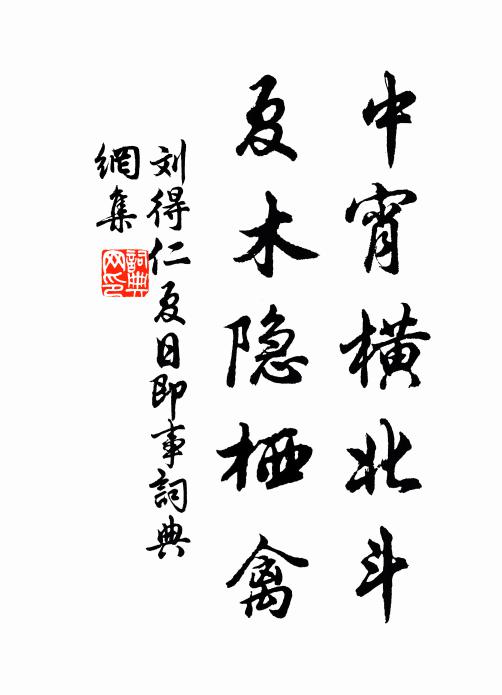 中宵横北斗
夏木隐栖禽
刘得仁夏日即事詞典
網集
詞典
网印